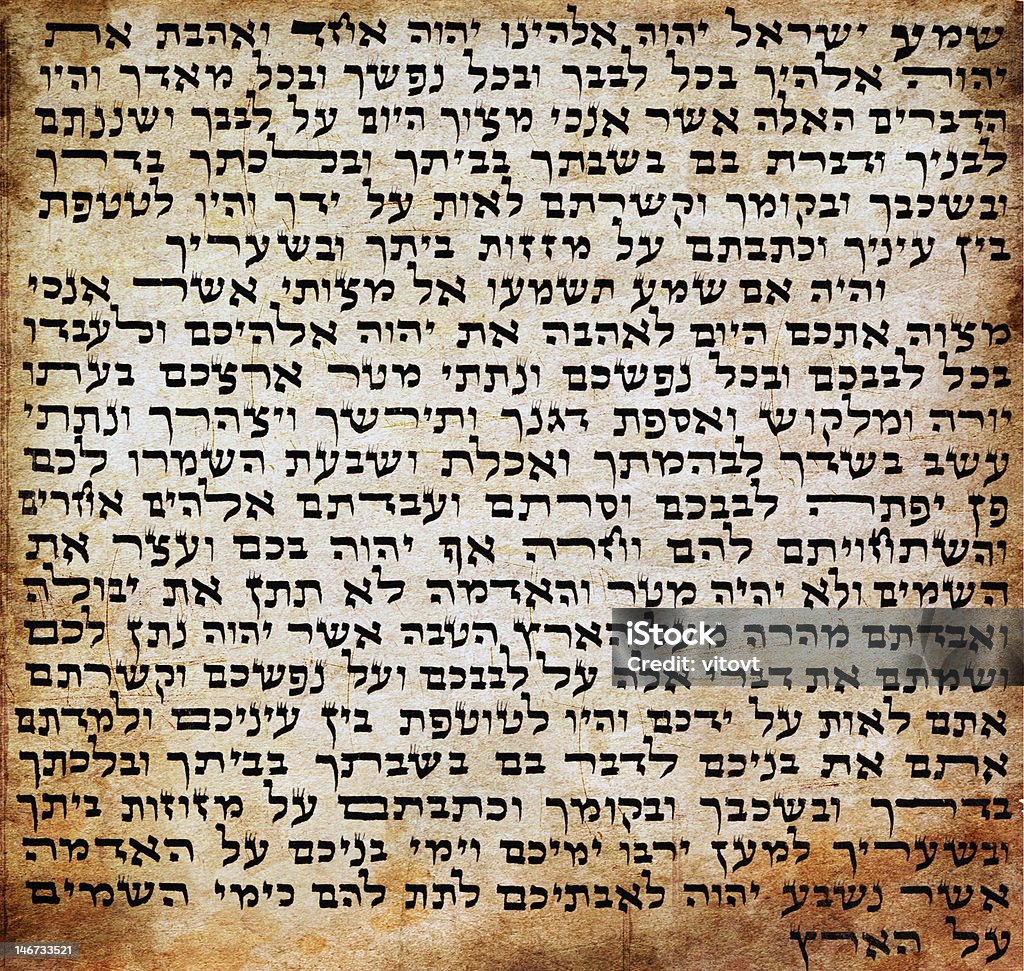 שמע ישראל יהוה אלהינו יהוה אחד ואהבת את
יהוה אלהיך בכל לבבך ובכל נפשך ובכל מאדך והיו
הדברים האלה אשר אנכי מצוך היום על לבבך ושננתם
לבניך ודברת בם בשבתך בביתך ובלכתך בדרך
ובשכבך ובקומך וקשרתם לאות על ידך והיו לטטפת
בין עיניך וכתבתם על מזזות ביתך ובשעריך
והיה אם שמע תשמעו אל מצותי אשר אנכי
מצוה אתכם היום לאהבה את יהוה אלהיכם ולעבדו
בכל לבבכם ובכל נפשכם ונתתי מטר ארצכם בעתו
יורה ומלקוש ואספת דגנך ותירשך ויצהרך ונתתי
עשב בשדך לבהמתך ואכלת ושבעת השמרו לכם
פן יפתה לבבכם וסרתם ועבדתם אלהים אחרים
והשתחויתם להם וחרה אף יהוה בכם ועצר את
השמים ולא יהיה מטר והאדמה לא תתן את יבולה
ואבדתם מהרה מעל הארץ הטבה אשר יהוה נתן לכם
iStock
Credit: vitovt
ושמתם את דברי אלה על לבבכם ועל נפשכם וקשרתם
אתם לאות על ידכם והיו לטוטפת בין עיניכם ולמדתם
אתם את בניכם לדבר בם בשבתך בביתך ובלכתך
בדרך ובשכבך ובקומך וכתבתם על מזוזות ביתך
ובשעריך למען ירבו ימיכם וימי בניכם על האדמה
אשר נשבע יהוה לאבתיכם לתת להם כימי השמים
על הארץ
146733521